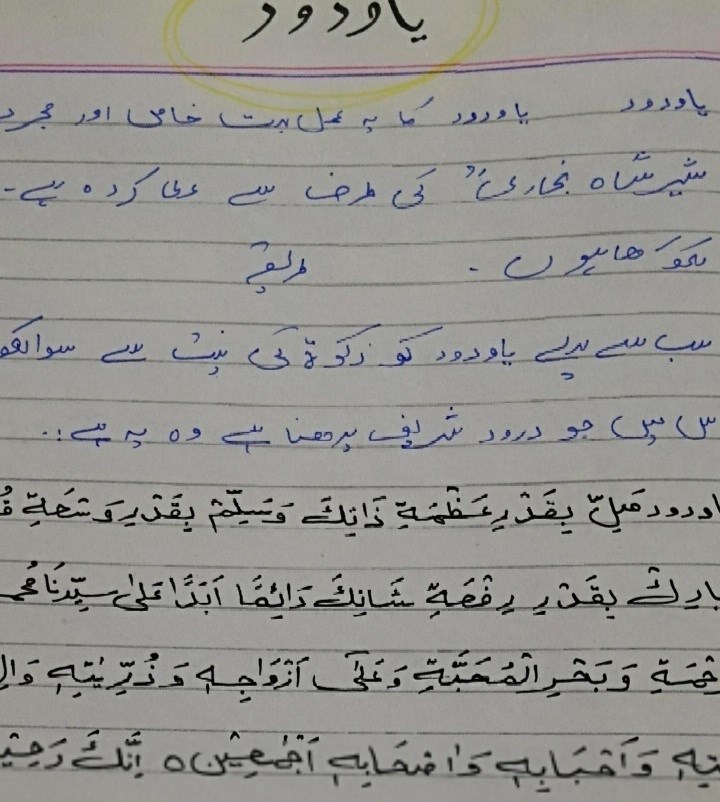 یاودود
یاودود یاودود کا یہ عمل بہت خاص اور مجرد
شیرشاہ بخاریؒ کی طرف سے عطا کردہ ہے۔
لکھا ہوں ۔ طریقہ
سب سے پہلے یاودود کو زکوٰۃ کی نیت سے سوالکھ
س میں جو درود شریف پڑھنا ہے وہ یہ ہے:۔
اودود صَلِّ بِقَدْرِ عَظْمَةِ ذَاتِكَ وَسَلِّمْ بِقَدْرِ وَسْعَةِ
بَارِكْ بِقَدْرِ رِفْعَةِ شَانِكَ دَائِمًا اَبَدًا عَلٰى سَيِّدِنَا مُحمد
وَبَحْرِ الْمُحَبَّةِ وَعَلٰى اَزْوَاجِهٖ وَذُرِّيّٰتِهٖ وَالِ
وَاَحْبَابِهٖ وَاَصْحَابِهٖ اَجْمَعِيْنَ ٥ اِنَّكَ رَحِيْ